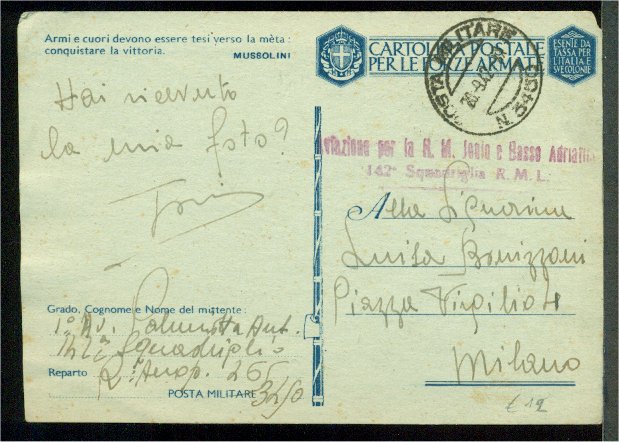 Armi e cuori devono essere tesi verso la mèta:
conquistare la vittoria.
MUSSOLINI
CARTOLINA POSTALE
PER LE FORZE ARMATE
ESENTE DA
TASSA PER
L'ITALIA E
SUE COLONIE
POSTA MILITARE
N. 3450
Hai ricevuto
la mia foto?
Aviazione per la R. M. Jonio e Basso Adriatico
142ª Squadriglia R. M. L.
Alla Signorina
Luisa Bonizzoni
Piazza Virgilio 4
Milano
Grado, Cognome e Nome del mittente:
1° Av. Ant.
142ª Squadriglia
Reparto R. Aerop. 265
POSTA MILITARE 3450
€ 12